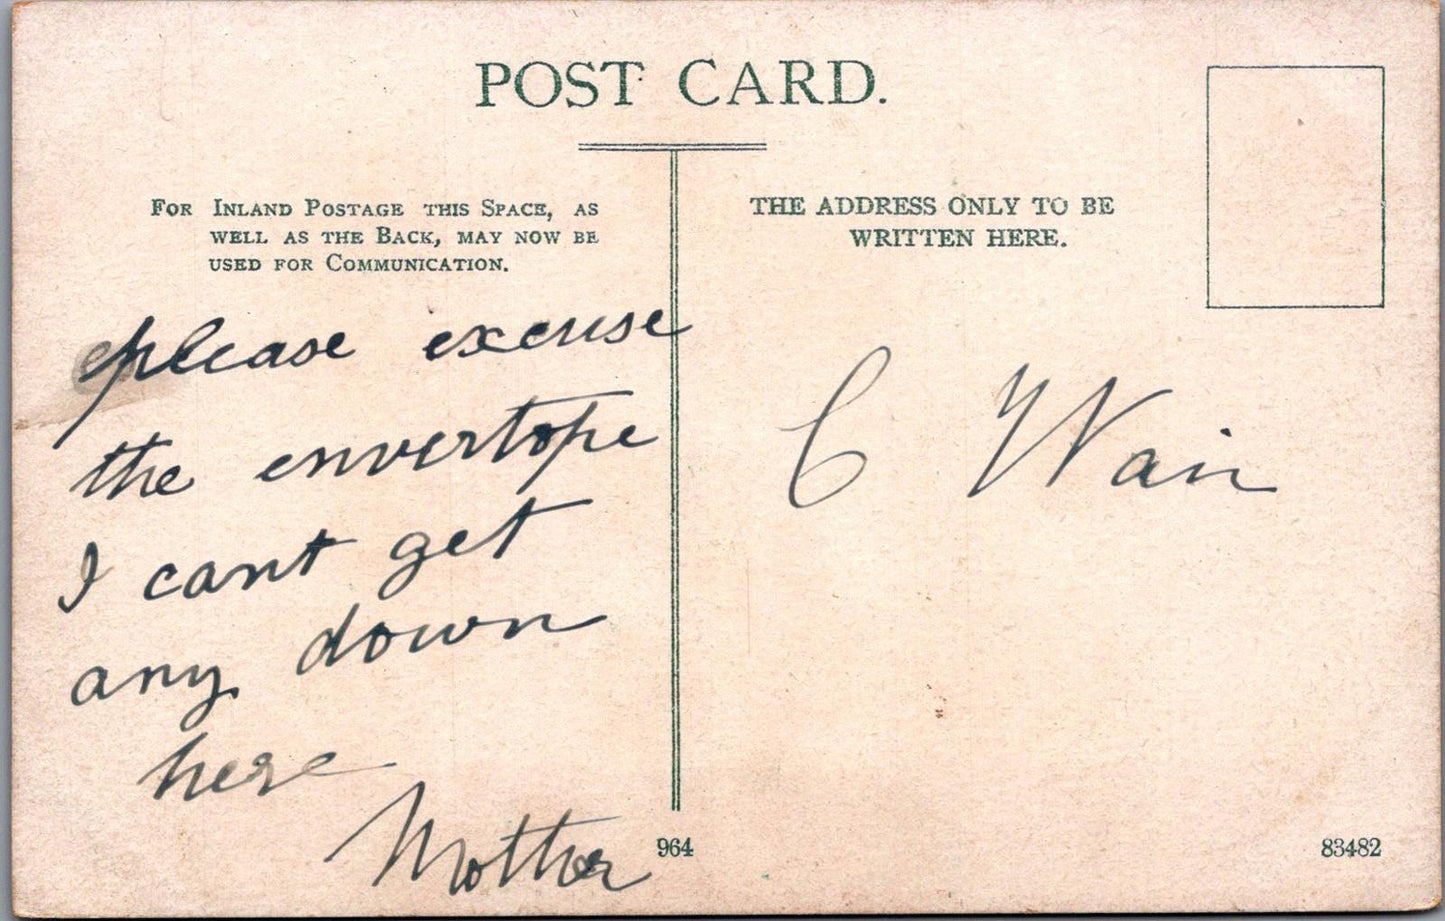 POST CARD.
FOR INLAND POSTAGE THIS SPACE, AS
WELL AS THE BACK, MAY NOW BE
USED FOR COMMUNICATION.
THE ADDRESS ONLY TO BE
WRITTEN HERE.
please excuse
the envertope
I cant get
any down
here
Mother
C Wair
964
83482